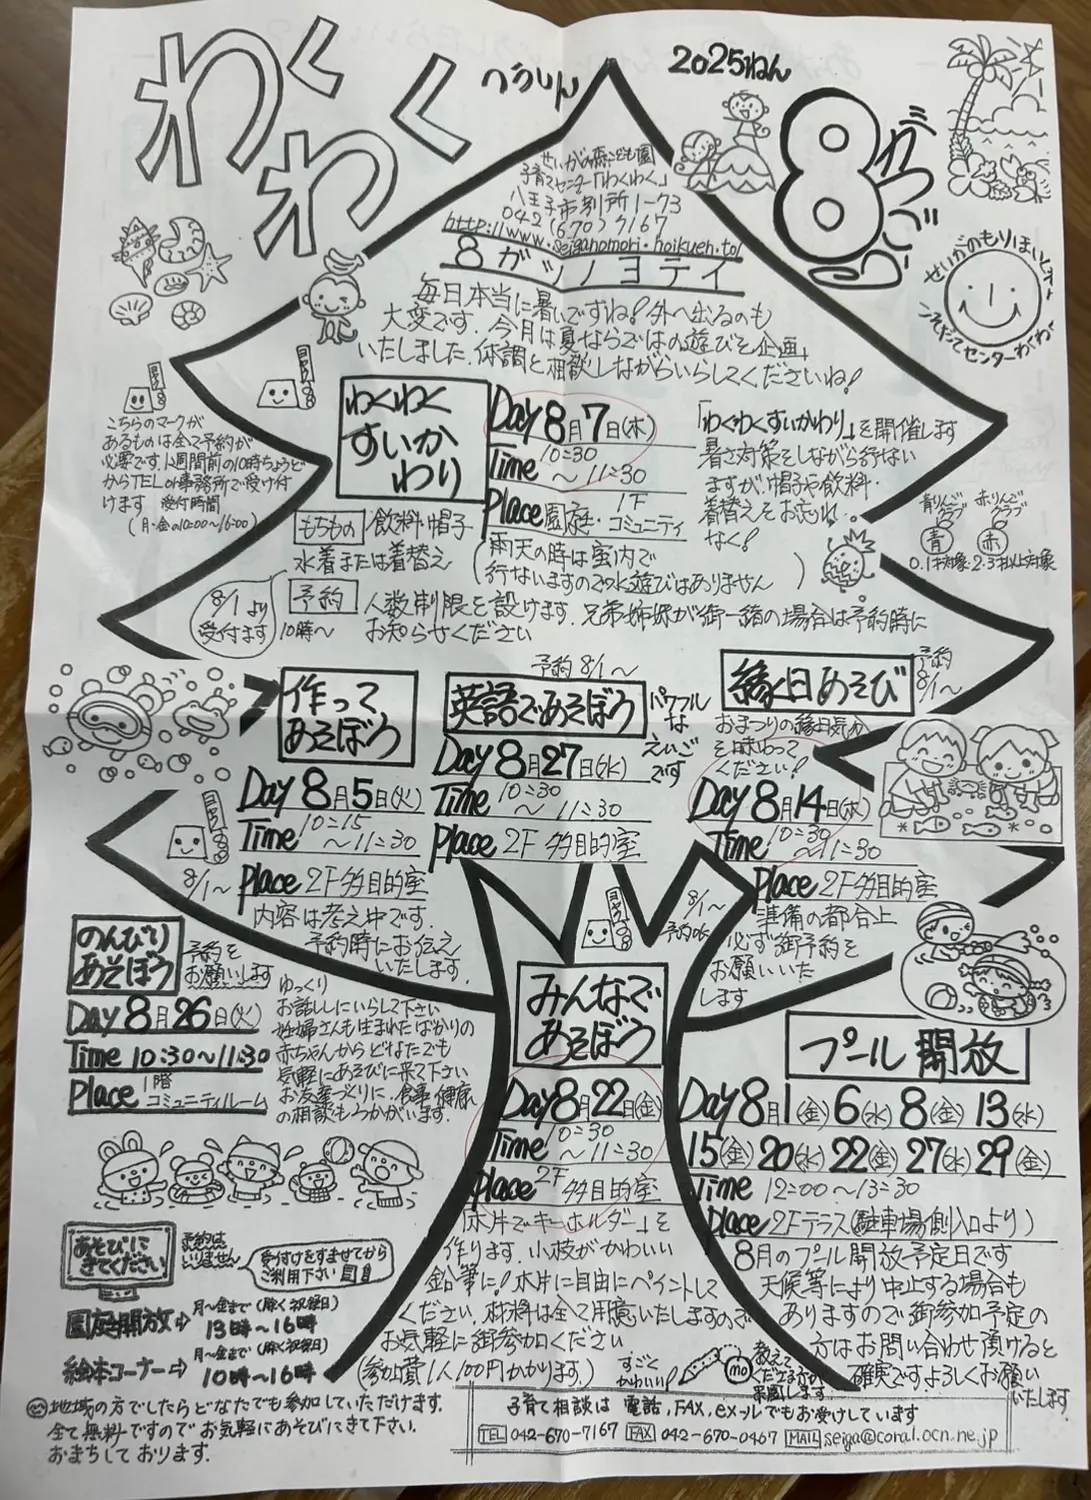 わくわく
つうしん
2025ねん
8がつごう
せいがの森こども園
子育てセンター「わくわく」
八王子市別所1-73
042(670)7167
http://www.seiganomori.hoikuen.to/
8ガツノヨテイ
せいがのもりほいくえん
こそだてセンターわくわく
毎日本当に暑いですね!外へ出るのも
大変です。今月は夏ならではの遊びを企画
いたしました。体調と相談しながらいらしてくださいね!
こちらのマークが
あるものは全て予約が
必要です。1週間前の10時ちょうど
からTEL or事務所で受け付
けます 受付時間
(月-金の10:00~16:00)
わくわく
すいか
わり
Day 8月7日(木)
Time 10:30
~11:30
Place 1F
園庭・コミュニティ
「わくわくすいかわり」を開催します
暑さ対策をしながら行ない
ますが、帽子や飲料・
着替えをお忘れ
なく!
青りんごクラブ
赤りんごクラブ
青
赤
0.1才対象
2.3才以上対象
もちもの 飲料・帽子
水着または着替え
(雨天の時は室内で
行ないますので水遊びはありません)
8/1より
受付ます
10時~
予約 人数制限を設けます。兄弟姉妹が御一緒の場合は予約時に
お知らせください
作って
あそぼう
Day 8月5日(火)
Time 10:15
~11:30
Place 2F多目的室
8/1~
内容は考え中です。
予約時にお伝え
いたします。
予約8/1~
英語であそぼう
パワフル
な
えいご
です
Day 8月27日(水)
Time 10:30
~11:30
Place 2F 多目的室
縁日あそび
予約
8/1~
おまつりの縁日気分
を味わって
ください!
Day 8月14日(木)
Time 10:30
~11:30
Place 2F多目的室
準備の都合上
必ず御予約を
お願いいた
します
のんびり
あそぼう
予約を
お願いします
Day 8月26日(火)
Time 10:30~11:30
Place 1階
コミュニティルーム
ゆっくり
お話ししにいらして下さい
妊婦さんも生まれたばかりの
赤ちゃんからどなたでも
気軽にあそびに来て下さい
お友達づくりに…食事・健康
の相談もうかがいます。
8/1~
予約OK
みんなで
あそぼう
Day 8月22日(金)
Time 10:30
~11:30
Place 2F
多目的室
「木片でキーホルダー」を
作ります。小枝がかわいい
鉛筆に!木片に自由にペイントして
ください。材料は全て用意いたしますので
お気軽に御参加ください
(参加費1人100円かかります。)
すごく
かわいい!
プール開放
Day 8月1(金) 6(水) 8(金) 13(水)
15(金) 20(水) 22(金) 27(水) 29(金)
Time 12:00~13:30
Place 2Fテラス(駐車場側入口より)
8月のプール開放予定日です
天候等により中止する場合も
ありますので御参加予定の
方はお問い合わせ頂けると
確実です。よろしくお願い
いたします。
あそびに
きてください
予約は
いりません
受付けをすませてから
ご利用下さい
園庭開放⇨ 月~金まで(除く祝祭日)
13時~16時
絵本コーナー⇨ 月~金まで(除く祝祭日)
10時~16時
地域の方でしたらどなたでも参加していただけます。
全て無料ですのでお気軽にあそびにきて下さい。
おまちしております。
子育て相談は 電話,FAX,eメールでもお受けしています
TEL 042-670-7167 FAX 042-670-0467 MAIL seiga@coral.ocn.ne.jp